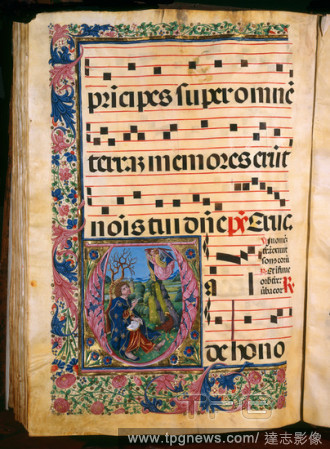 prīcipes super omnē
terraʒ memores erūt
nois tui dñe p̄s Eruc.
a
de hono
TPG
www.tpgnews.com/ 達志影像